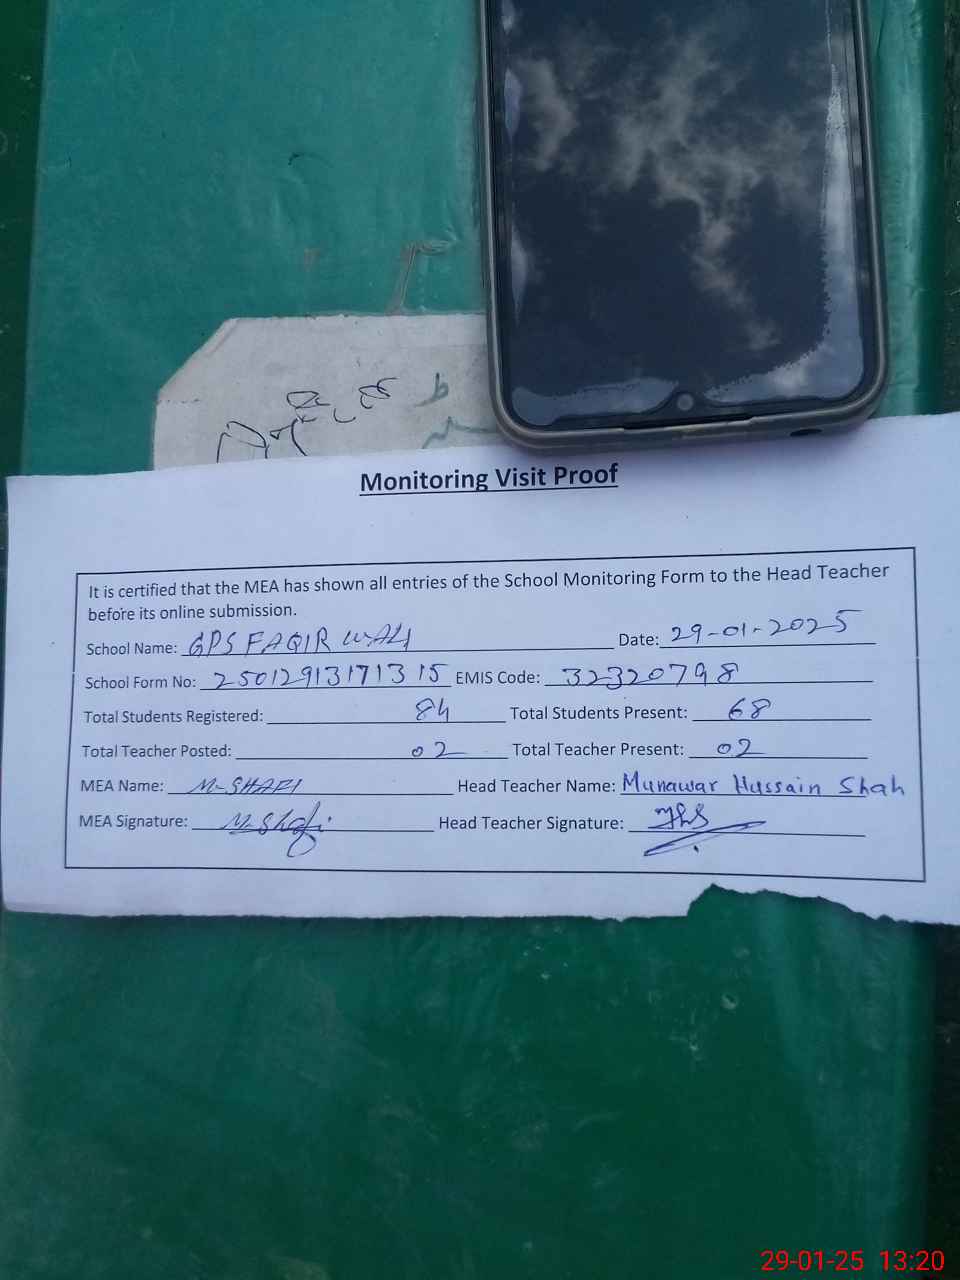 Monitoring Visit Proof
It is certified that the MEA has shown all entries of the School Monitoring Form to the Head Teacher
before its online submission.
School Name: GPS FAQIR WALI Date: 29-01-2025
School Form No: 25012913171315 EMIS Code: 32320798
Total Students Registered: 84 Total Students Present: 68
Total Teacher Posted: 02 Total Teacher Present: 02
MEA Name: M-SHAFI Head Teacher Name: Munawar Hussain Shah
MEA Signature: M-Shafi Head Teacher Signature:
29-01-25 13:20